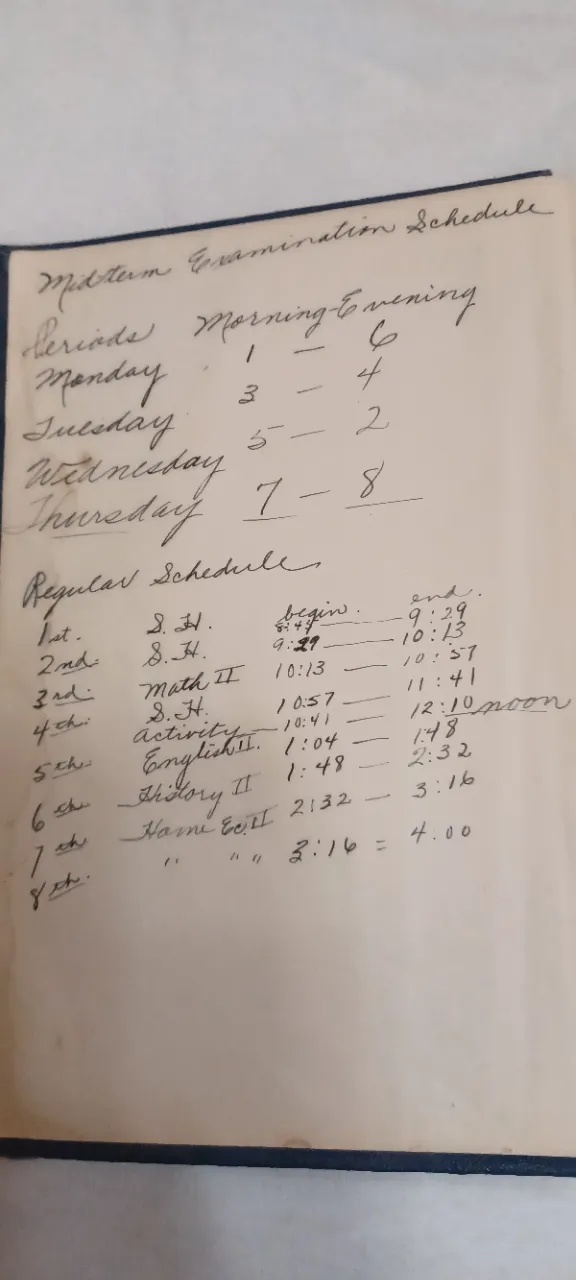 Midterm Examination Schedule
Periods Morning-Evening
Monday 1 — 6
Tuesday 3 — 4
Wednesday 5 — 2
Thursday 7 — 8
Regular Schedule
begin. end.
1st. S.H. 8:45 — 9:29
2nd. S.H. 9:29 — 10:13
3rd. Math II 10:13 — 10:57
4th. S.H. 10:57 — 11:41
Activity — 10:41 — 12:10 noon
5th English II. 1:04 — 1:48
6th History II 1:48 — 2:32
7th Home Ec. II 2:32 — 3:16
8th. " " " 3:16 = 4.00